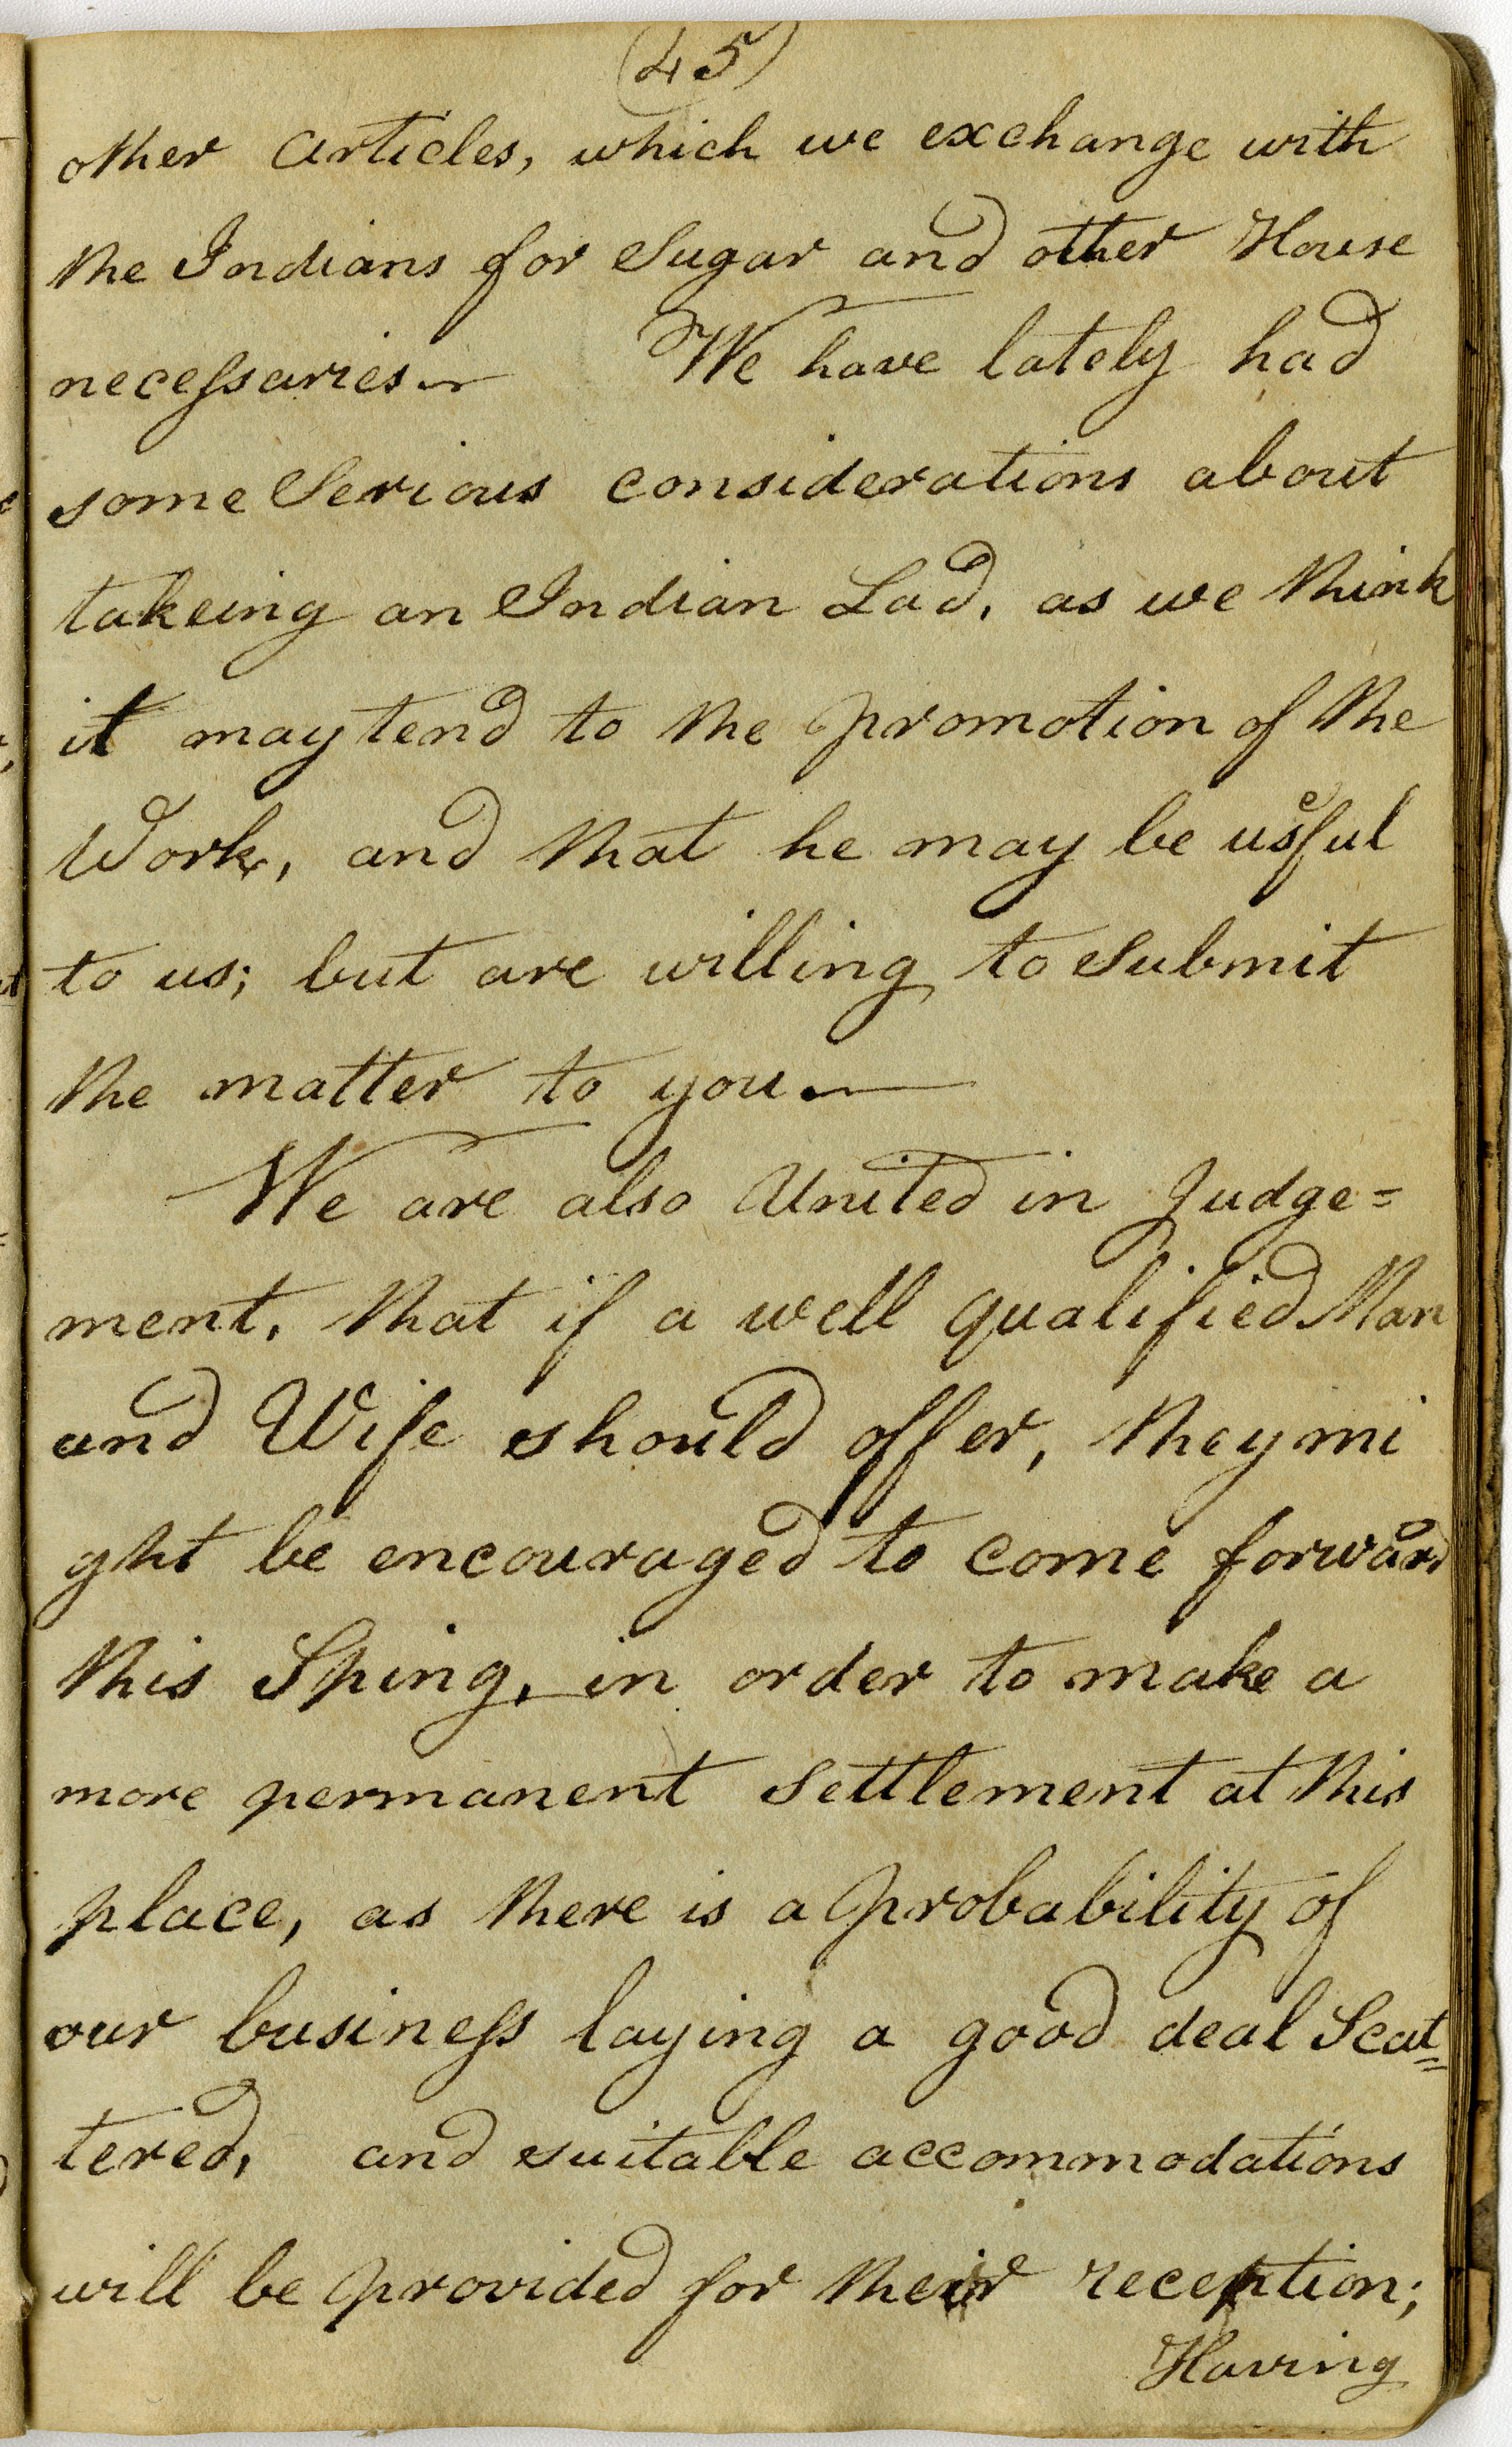 (45)
other articles, which we exchange with
the Indians for Sugar and other House
necessaries.— We have lately had
some Serious considerations about
takeing an Indian Lad, as we think
it may tend to the promotion of the
Work, and that he may be useful
to us; but are willing to Submit
the matter to you.—
We are also United in Judge=
ment, that if a well qualified Man
and Wife should offer, they mi
ght be encouraged to come forward
this Sping, in order to make a
more permanent Settlement at this
place, as there is a probability of
our business laying a good deal Scat=
tered, and suitable accommodations
will be provided for their reception;
Having